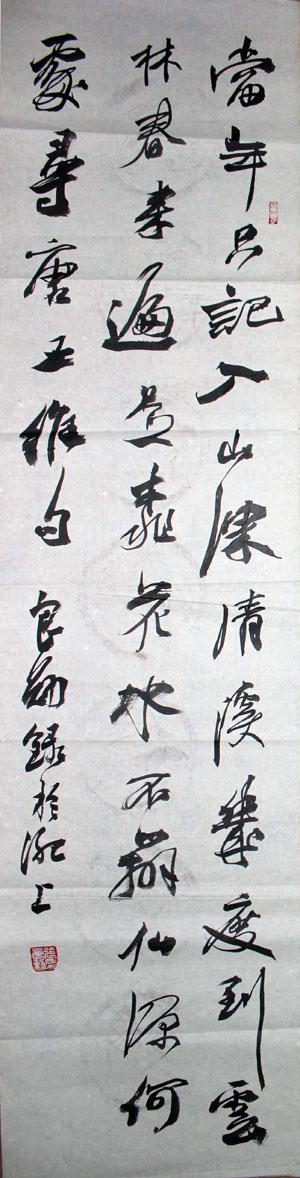 當年只記入山深清溪幾度到雲
林春來遍是桃花水不辨仙源何
處尋唐王維句 良勛錄於淝上